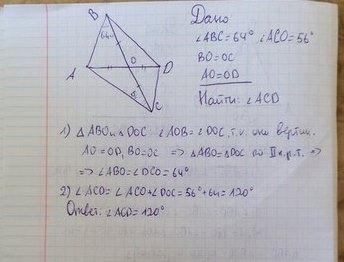 Дано
∠ABC=64° ∠ACO=56°
BO=OC
AO=OD
Найти: ∠ACD
B
64
A
O
D
C
1) △ABO и △DOC ∠AOB=∠DOC, т.к. они вертик.
AO=OD, BO=OC ⇒ △ABO=△DOC по II п.р.т. ⇒
⇒ ∠ABO=∠DCO=64°
2) ∠ACD=∠ACO+∠DOC=56°+64=120°
Ответ: ∠ACD=120°